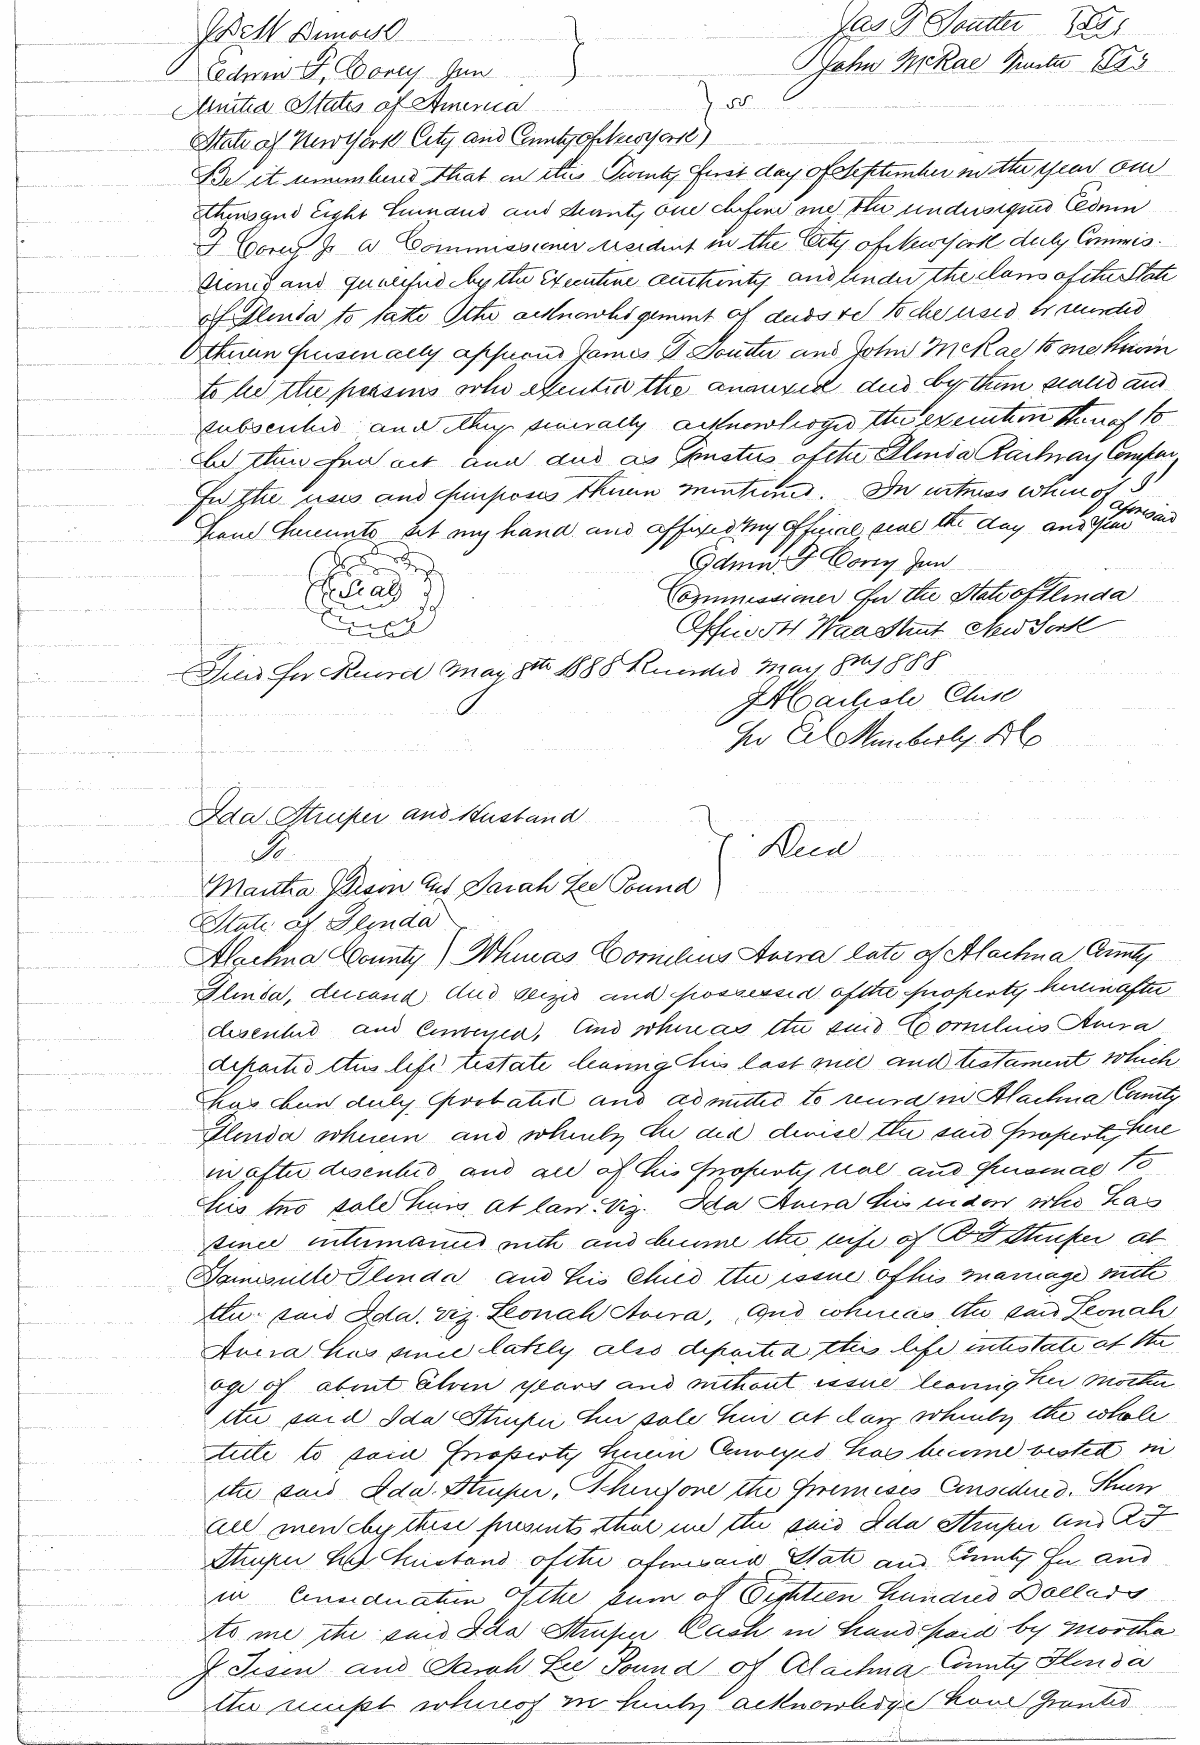 Jas T Soutter
Edwin F. Corey Jun
John McRae Trustee
United States of America } ss
State of New York City and County of New York )
Be it remembered that on this Twenty first day of September in the year one
thousand Eight hundred and seventy one before me the undersigned Edwin
F Corey Jr a Commissioner resident in the City of New York duly Commis-
sioned and qualified by the Executive authority and under the laws of the State
of Florida to take the acknowledgement of deeds &c to be used or recorded
therein personally appeared James T Soutter and John McRae to me known
to be the persons who executed the annexed deed by them sealed and
subscribed and they severally acknowledged the execution thereof to
be their free act and deed as Trustees of the Florida Railway Company
for the uses and purposes therein mentioned. In witness whereof I
have hereunto set my hand and affixed my official seal the day and year aforesaid
Edwin F Corey Jun
Seal
Commissioner for the State of Florida
Office 54 Wall Street New York
Filed for Record May 8th 1888 Recorded May 8th 1888
J A Carlisle Clerk
Per Wimberly. D C
Ida Struper and Husband
To } Deed
Martha J Tison and Sarah Lee Pound
State of Florida
Alachua County ) Whereas Cornelius Avera late of Alachua County
Florida, deceased died seized and possessed of the property hereinafter
described and conveyed, and whereas the said Cornelius Avera
departed this life testate leaving his last will and testament which
has been duly probated and admitted to record in Alachua County
Florida wherein and whereby he did devise the said property here
in after described and all of his property real and personal to
his two sole heirs at law. Viz. Ida Avera his widow who has
since intermarried with and become the wife of R F Struper at
Gainesville Florida and his child the issue of his marriage with
the said Ida. viz. Leonah Avera, and whereas the said Leonah
Avera has since lately also departed this life intestate at the
age of about Eleven years and without issue leaving her mother
the said Ida Struper her sole heir at law whereby the whole
title to said property herein conveyed has become vested in
the said Ida Struper, Therefore the premises considered. Know
all men by these presents that we the said Ida Struper and R F
Struper her husband of the aforesaid State and County for and
in consideration of the sum of Eighteen hundred Dollars
to me the said Ida Struper Cash in hand paid by Martha
J Tison and Sarah Lee Pound of Alachua County Florida
the receipt whereof we hereby acknowledge have granted